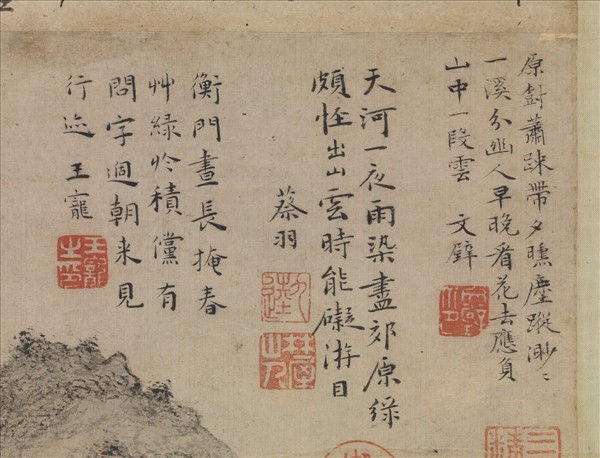 原尌蕭踈帶夕曛塵蹤渺〻
一溪分幽人早晚看花去應負
山中一段雲 文璧
天河一夜雨染盡郊原綠
頗怪出山雲時能礙游目
蔡羽
九逵
衡門晝長掩春
艸綠於積儻有
問字過朝来見
行迹 王寵
王寵之印